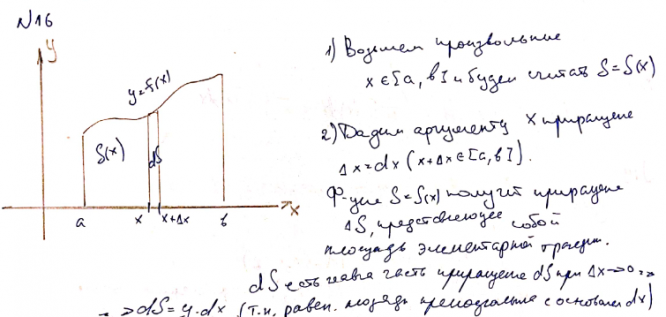 №16
y
y=f(x)
S(x)
dS
a
x
x+Δx
в
x
1) Возьмем произвольные
x ∈ [a, в] и будем считать S=S(x)
2) Дадим аргументу x приращение
Δx=dx (x+Δx ∈ [a, в]).
Ф-ция S=S(x) получит приращение
ΔS, представляющее собой
площадь элементарной трапеции.
dS есть главная часть приращения dS при Δx→0
=> dS=y·dx (т.к. равен. площадь прямоугольника с основанием dx)